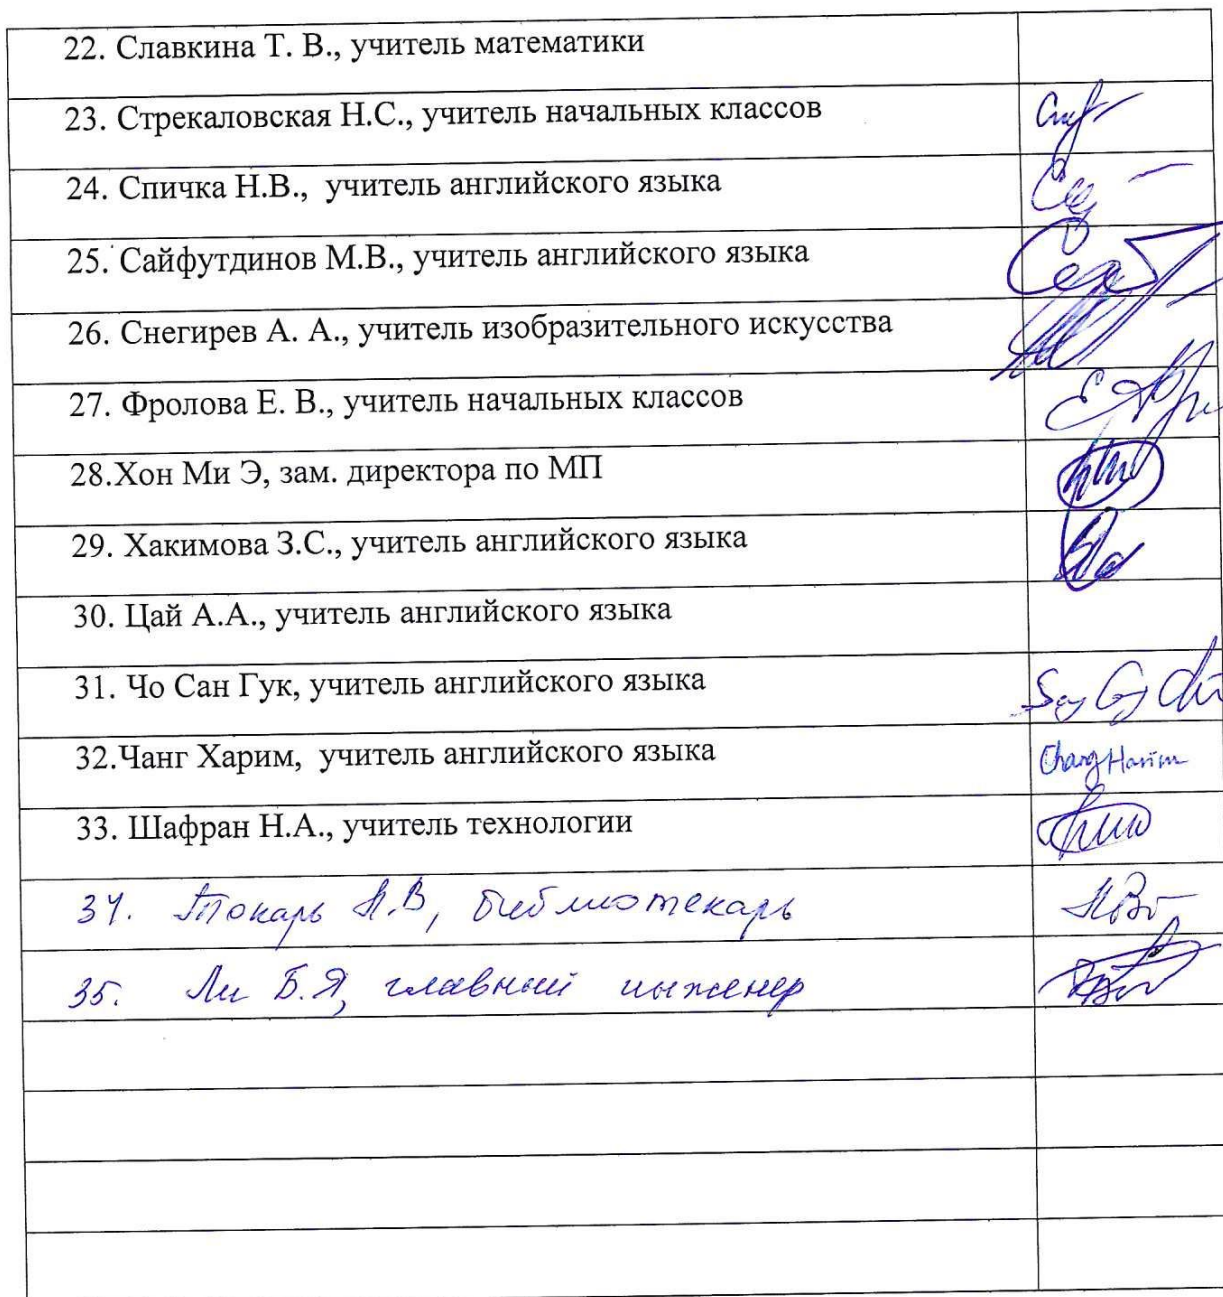 22. Славкина Т. В., учитель математики
23. Стрекаловская Н.С., учитель начальных классов
24. Спичка Н.В., учитель английского языка
25. Сайфутдинов М.В., учитель английского языка
26. Снегирев А. А., учитель изобразительного искусства
27. Фролова Е. В., учитель начальных классов
28.Хон Ми Э, зам. директора по МП
29. Хакимова З.С., учитель английского языка
30. Цай А.А., учитель английского языка
31. Чо Сан Гук, учитель английского языка
32.Чанг Харим, учитель английского языка Chang Harim
33. Шафран Н.А., учитель технологии
34. Токарь Л.В, библиотекарь
35. Ли Б.Я, главный инженер